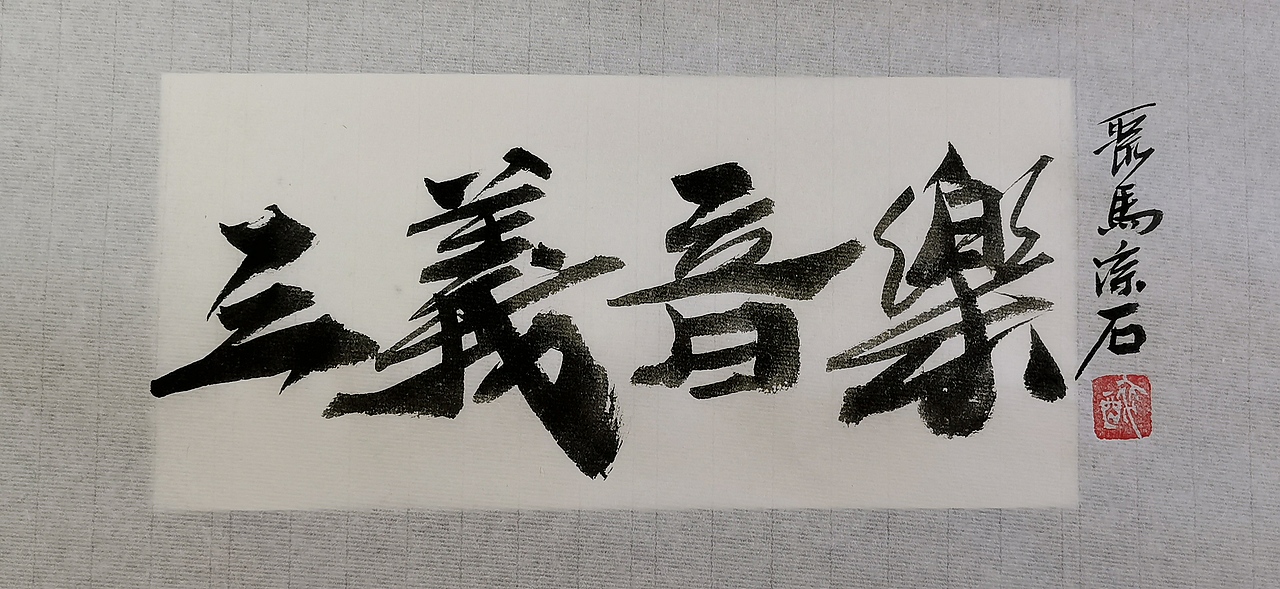 三義音樂
聚馬涼石